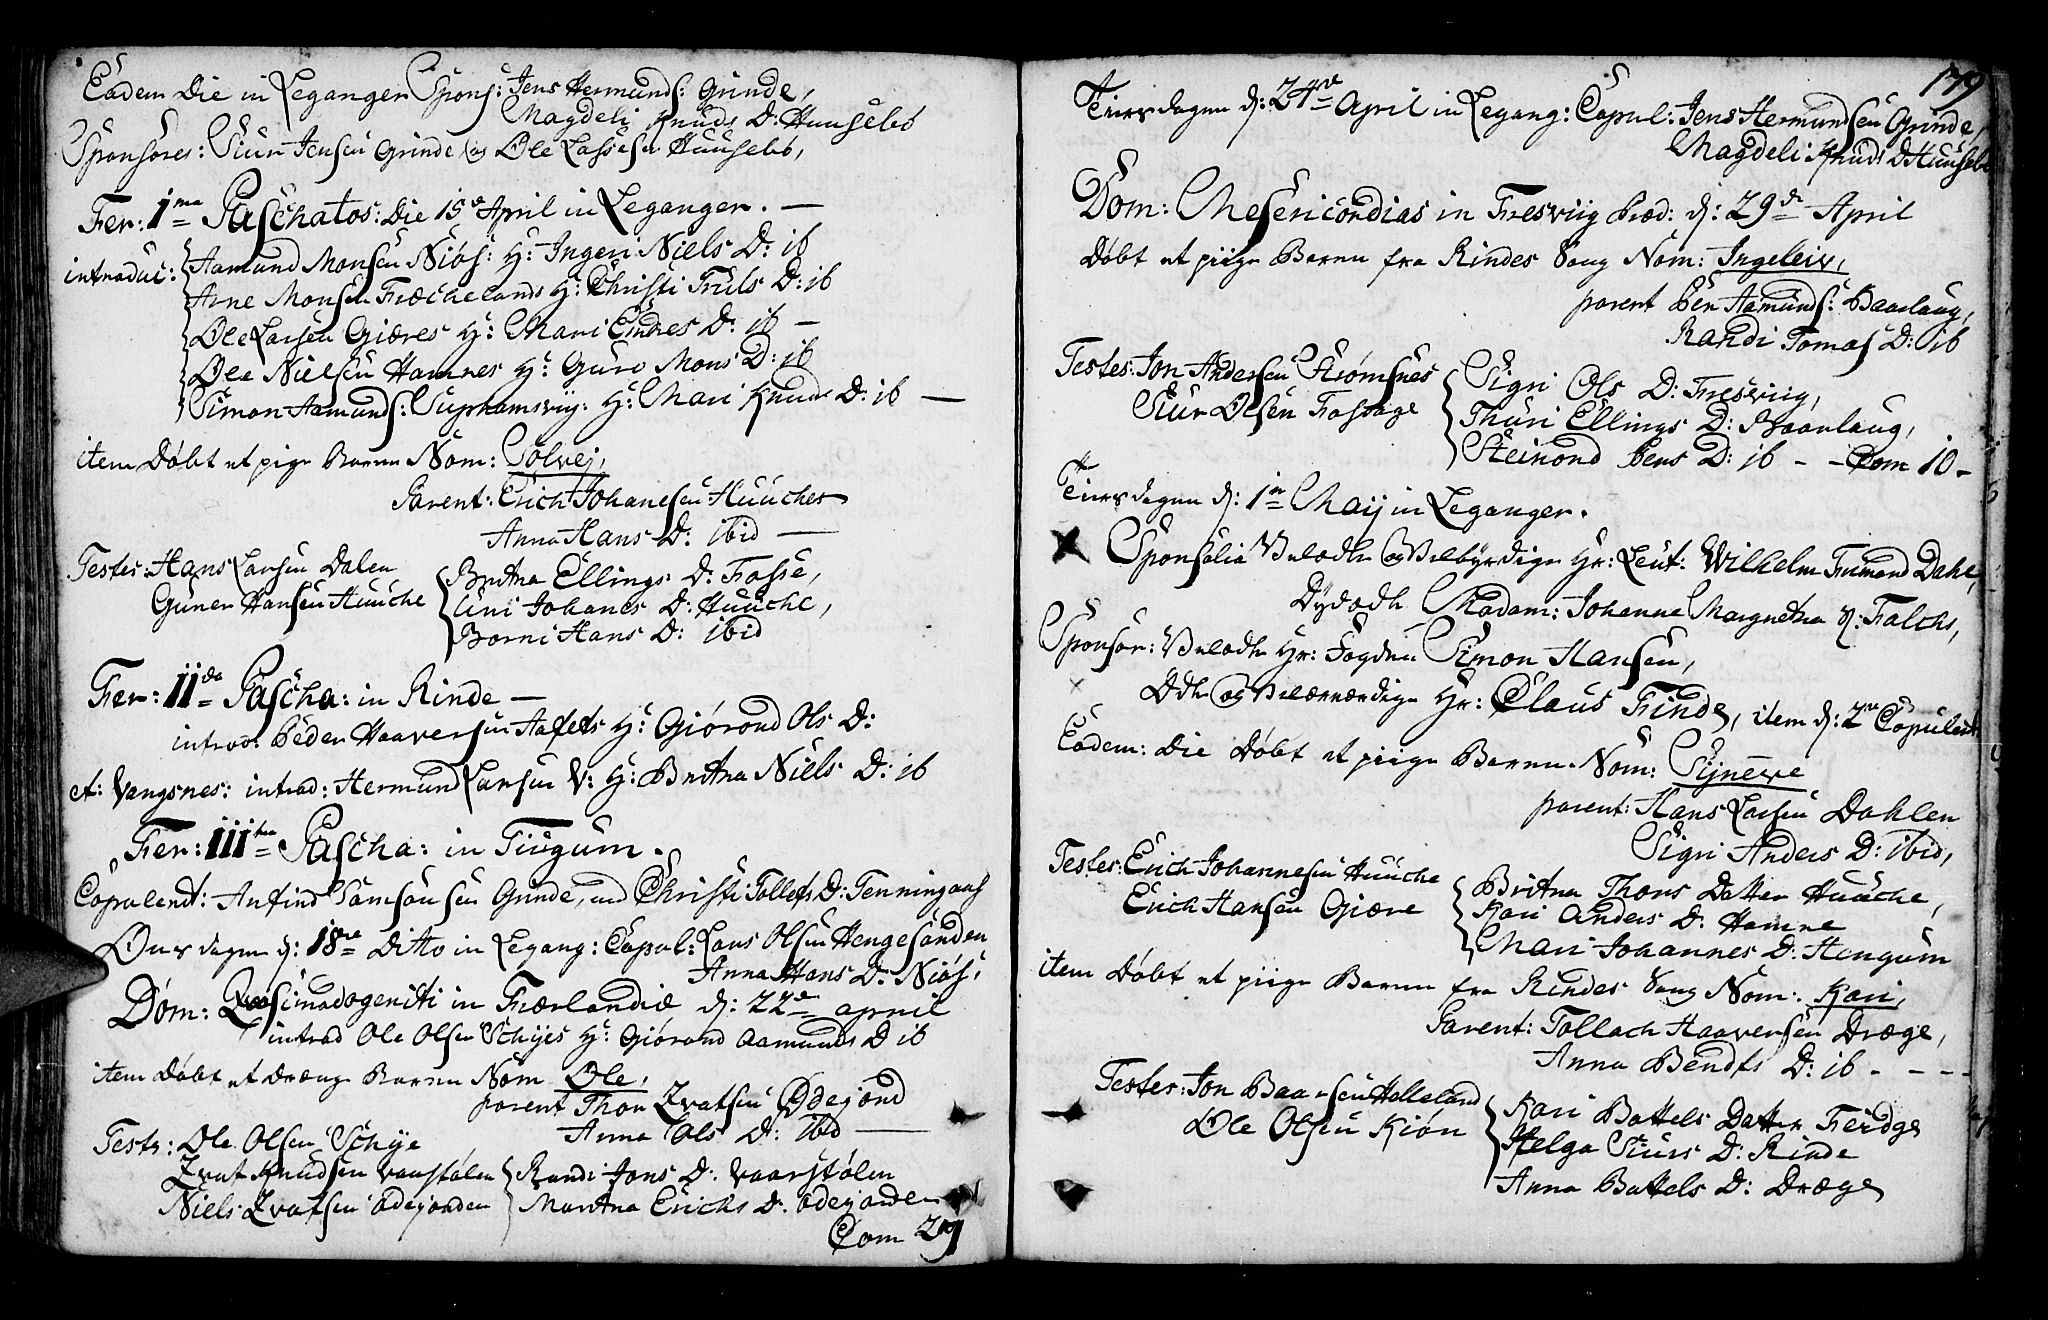 Eadem Die in Leganger Spons: Jens Hermunds: Grinde,
Magdeli Knuds D: Huusebö
Sponsores: Siur Jensen Grinde og Ole Lassesen Huusebö,
Fer: 1ma Paschatos: Die 15de April in Leganger. —
introduc: Aamund Monsen Niøs: H: Ingeri Niels D: ib
Arne Monsen Fræchelands H: Christi Truls D: ib
Ole Larsen Giæres H: Mari Endres D: ib —
Ole Nielsen Hamnes H: Guro Mons D: ib
Simon Aamunds: Suphamsviig: H: Mari Knuds D: ib —
item Døbt et pige Barn Nom: Sølvej,
Parent: Erich Johanesen Huucher
Anna Hans D: ibid —
Testes: Hans Larsen Dalen
Guner Hansen Huuche
Britha Ellings D: Fosse,
Uni Johanes D: Huuche,
Borni Hans D: ibid
Fer: IIda Pascha: in Rinde —
introd: Peder Haaversen Aafets H: Giørond Ols D:
et: Vangsnes: introd: Hermund Larsen V: H: Britha Niels D: ib
Fer: IIItia Pascha: in Tiugum.
Copulendt: Anfind Samsonsen Grinde, med Christi Tollefs D: Tenningaas
Onsdagen d: 18de Ditto in Legang: Copul: Lars Olsen Hengesanden
Anna Hans D: Niøs:
Dom: Quasimodogeniti in Færlandiæ d: 22de april
introd Ole Olsen Schjes H: Giørond Aamunds D ib
item Døbt et Drænge Barn Nom Ole,
parent Thor Ivatsen Ødejord
Anna Ols D: ibid —
Testes: Ole Olsen Schje
Ivat Knudsen Vaarstølen
Niels Ivatsen Ødejorden
Randi Jons D: Vaarstølen
Martha Erichs D: Ødejorden
Com 29
179
Tiirsdagen d: 24de April in Legang: Copul: Jens Hermundsen Grinde,
Magdeli Knuds D Huusebö
Dom: Mesericordias in Fresviig Præd: d: 29de April
Døbt et piige Barn fra Rindes Song Nom: Ingeleiv,
parent Per Aamunds: Baarlaug,
Randi Tomas D: ib
Testes: Jon Andersen Strømsnes
Siur Olsen Fostøge
Sigri Ols D: Fresviig,
Thuri Ellings D: Baarlaug,
Steinond Jens D: ib - - Com 10 -
Tiirsdagen d: 1te Maij in Leganger.
Sponsalia Velædle og Velbyrdige Hr: Leut: Wilhelm Frimand Dahl,
Dydædle Madam: Johanne Margretha Falchs,
Sponsor: Velædle Hr: Fogden Simon Hansen,
Ædle og Velærværdige Hr: Claus Finde, item d: 2den Copuleret
Eadem: Die Døbt et piige Barn Nom: Sijneve
parent: Hans Larsen Dahlen
Sigri Anders D: ibid,
Testes: Erich Johannesen Huuche
Erich Hansen Giære
Britha Thors Datter Huuche,
Kari Anders D: Hamre
Mari Johannes D: Hengum
item Døbt et piige Barn fra Rindes Song Nom: Kari,
Parent: Tollach Haaversen Dræge,
Anna Bendts D: ib - - -
Testes: Jon Baarsen Holleland
Ole Olsen Kiøn
Kari Bottels Datter Feidge
Helga Siurs D: Rinde
Anna Bottels D: Dræge